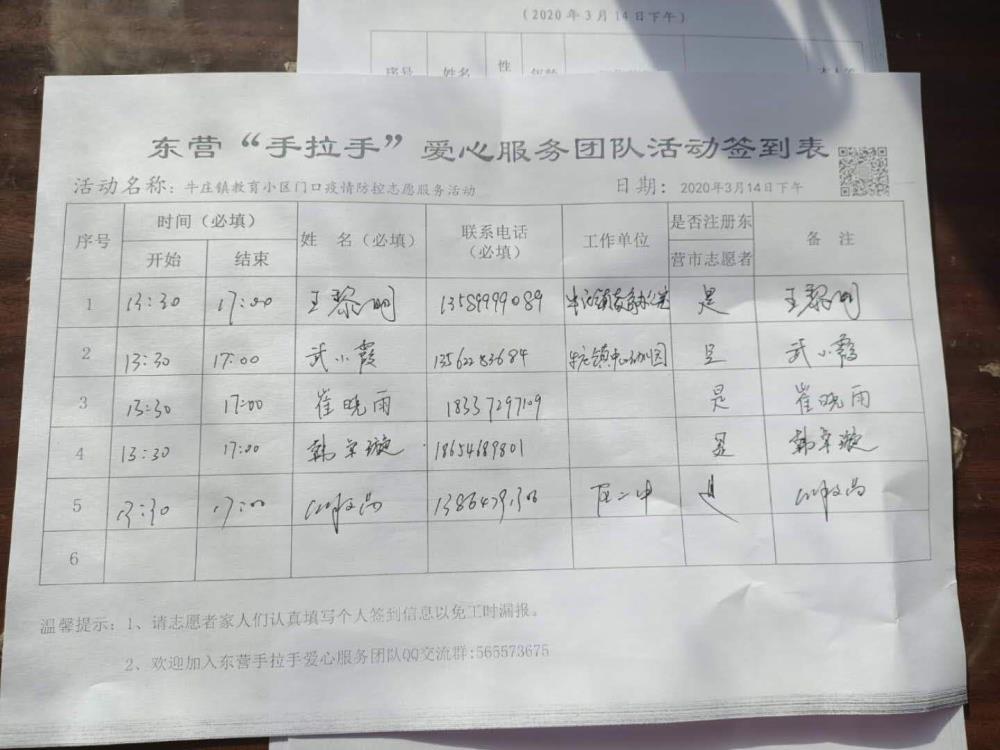 (2020年3月14日下午)
序号 姓名 性
东营“手拉手”爱心服务团队活动签到表
活动名称：牛庄镇教育小区门口疫情防控志愿服务活动 日期：2020年3月14日下午
序号 时间（必填） 姓 名（必填） 联系电话（必填） 工作单位 是否注册东营市志愿者 备 注
开始 结束
1 13:30 17:00 王黎明 13589999089 是 王黎明
2 13:30 17:00 武小霞 13562283684 牛庄镇中心幼儿园 是 武小霞
3 13:30 17:00 崔晓雨 18337297109 是 崔晓雨
4 13:30 17:00 韩卓璇 18654689801 是 韩卓璇
5 13:30 17:00 是
6
温馨提示：1、请志愿者家人们认真填写个人签到信息以免工时漏报。
2、欢迎加入东营手拉手爱心服务团队QQ交流群:565573675